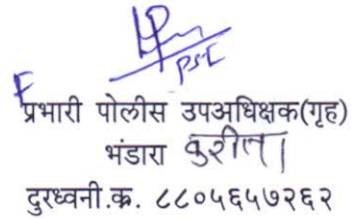 PSI
प्रभारी पोलीस उपअधिक्षक(गृह)
भंडारा करीता
दुरध्वनी.क्र. ८८०५६४७२६२